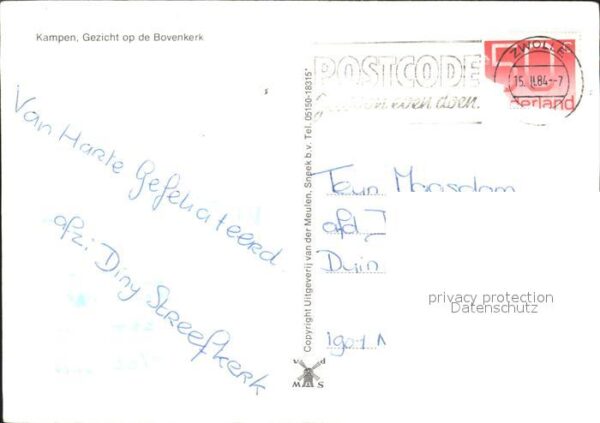 Kampen, Gezicht op de Bovenkerk
Van Harte Gefeliciteerd
afz: Diny Streefkerk
Copyright Uitgeverij van der Meulen, Sneek b.v. Tel. 05150-18315*
v d
M S
POSTCODE
doen.
ZWOLLE
15.II.84-7
50
nederland
Teun Maasdam
afd
Duin
privacy protection
Datenschutz